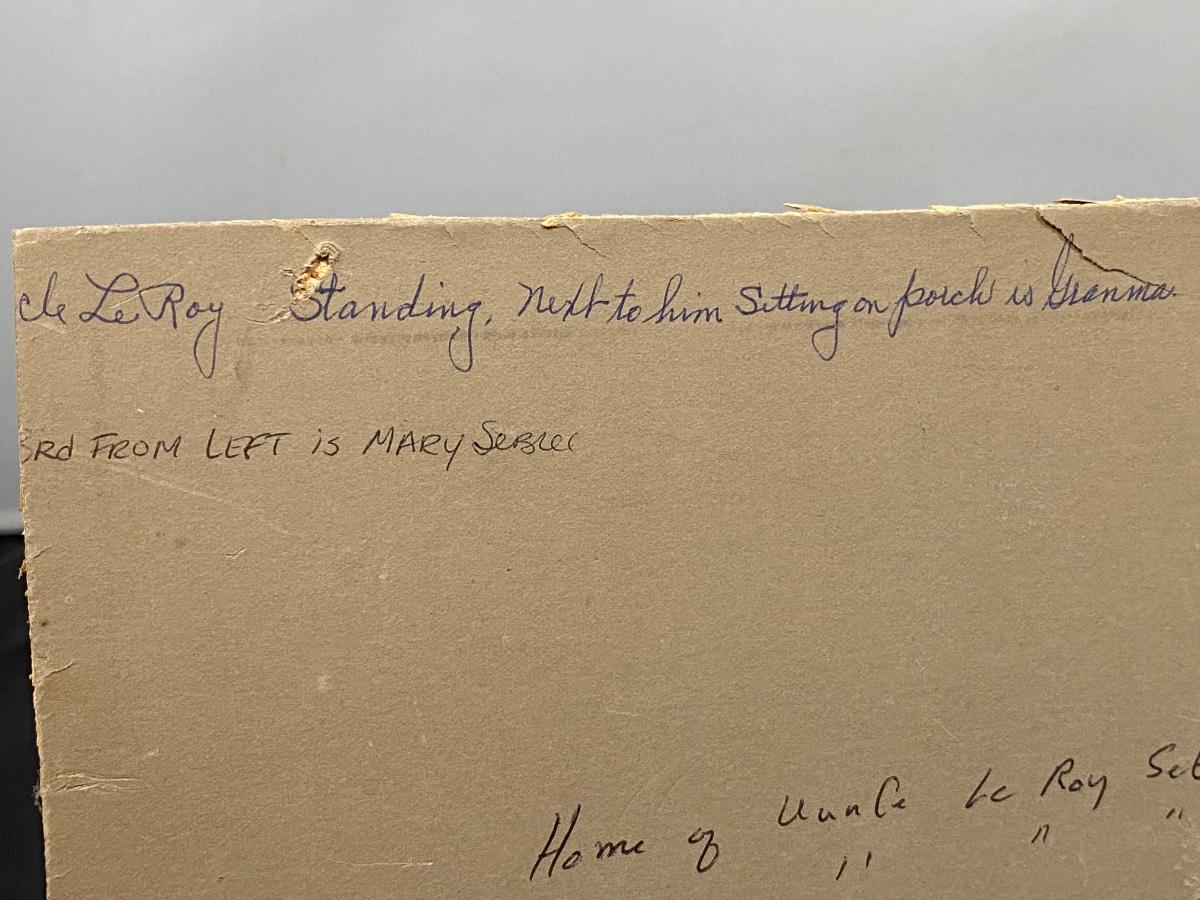 cle LeRoy Standing, Next to him Sitting on porch is Granma.
3Rd FROM LEFT is MARY SEBREE
Home of Uunce Le Roy Seb
" " "